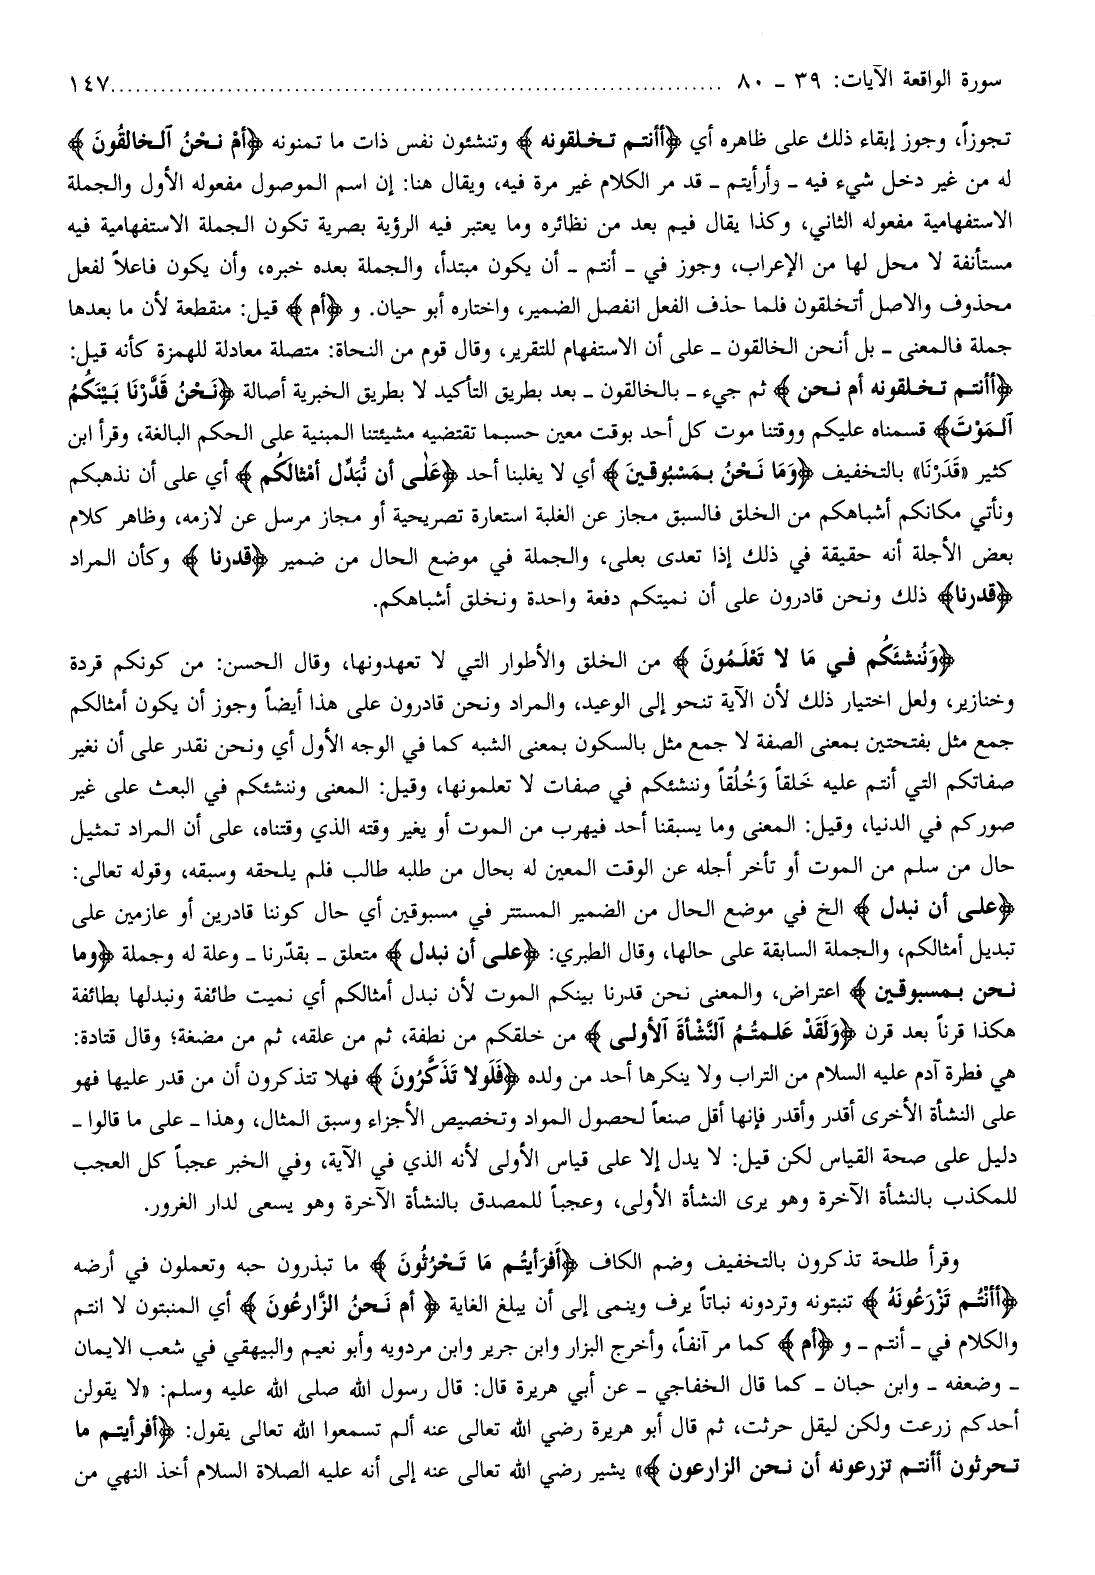 سورة الواقعة الآيات: ٣٩ ـ ٨٠ ................................................................ ١٤٧
تجوزاً، وجوز إبقاء ذلك على ظاهره أي ﴿أأنتم تخلقونه﴾ وتنشئون نفس ذات ما تمنونه ﴿أمْ نحْنُ ٱلخالقُونَ﴾
له من غير دخل شيء فيه ـ وأرأيتم ـ قد مر الكلام غير مرة فيه، ويقال هنا: إن اسم الموصول مفعوله الأول والجملة
الاستفهامية مفعوله الثاني، وكذا يقال فيم بعد من نظائره وما يعتبر فيه الرؤية بصرية تكون الجملة الاستفهامية فيه
مستأنفة لا محل لها من الإعراب، وجوز في ـ أنتم ـ أن يكون مبتدأ، والجملة بعده خبره، وأن يكون فاعلاً لفعل
محذوف والاصل أتخلقون فلما حذف الفعل انفصل الضمير، واختاره أبو حيان. و ﴿أم﴾ قيل: منقطعة لأن ما بعدها
جملة فالمعنى ـ بل أنحن الخالقون ـ على أن الاستفهام للتقرير، وقال قوم من النحاة: متصلة معادلة للهمزة كأنه قيل:
﴿أأنتم تخلقونه أم نحن﴾ ثم جيء ـ بالخالقون ـ بعد بطريق التأكيد لا بطريق الخبرية أصالة ﴿نَحْنُ قَدَّرْنَا بَيْنَكُمُ
ٱلمَوْتَ﴾ قسمناه عليكم ووقتنا موت كل أحد بوقت معين حسبما تقتضيه مشيئتنا المبنية على الحكم البالغة، وقرأ ابن
كثير «قَدَرْنَا» بالتخفيف ﴿وَمَا نَحْنُ بمَسْبُوقينَ﴾ أي لا يغلبنا أحد ﴿عَلٰى أن نُّبَدِّلَ أمْثالَكُم﴾ أي على أن نذهبكم
ونأتي مكانكم أشباهكم من الخلق فالسبق مجاز عن الغلبة استعارة تصريحية أو مجاز مرسل عن لازمه، وظاهر كلام
بعض الأجلة أنه حقيقة في ذلك إذا تعدى بعلى، والجملة في موضع الحال من ضمير ﴿قدرنا﴾ وكأن المراد
﴿قدرنا﴾ ذلك ونحن قادرون على أن نميتكم دفعة واحدة ونخلق أشباهكم.
﴿وَنُنشئَكُم في مَا لا تَعْلَمُونَ﴾ من الخلق والأطوار التي لا تعهدونها، وقال الحسن: من كونكم قردة
وخنازير، ولعل اختيار ذلك لأن الآية تنحو إلى الوعيد، والمراد ونحن قادرون على هذا أيضاً وجوز أن يكون أمثالكم
جمع مثل بفتحتين بمعنى الصفة لا جمع مثل بالسكون بمعنى الشبه كما في الوجه الأول أي ونحن نقدر على أن نغير
صفاتكم التي أنتم عليه خَلقاً وَخُلُقاً وننشئكم في صفات لا تعلمونها، وقيل: المعنى وننشئكم في البعث على غير
صوركم في الدنيا، وقيل: المعنى وما يسبقنا أحد فيهرب من الموت أو يغير وقته الذي وقتناه، على أن المراد تمثيل
حال من سلم من الموت أو تأخر أجله عن الوقت المعين له بحال من طلبه طالب فلم يلحقه وسبقه، وقوله تعالى:
﴿على أن نبدل﴾ الخ في موضع الحال من الضمير المستتر في مسبوقين أي حال كوننا قادرين أو عازمين على
تبديل أمثالكم، والجملة السابقة على حالها، وقال الطبري: ﴿على أن نبدل﴾ متعلق ـ بقدّرنا ـ وعلة له وجملة ﴿وما
نحن بمسبوقين﴾ اعتراض، والمعنى نحن قدرنا بينكم الموت لأن نبدل أمثالكم أي نميت طائفة ونبدلها بطائفة
هكذا قرناً بعد قرن ﴿وَلَقَدْ عَلمتُمُ ٱلنَّشأةَ ٱلأولى﴾ من خلقكم من نطفة، ثم من علقه، ثم من مضغة؛ وقال قتادة:
هي فطرة آدم عليه السلام من التراب ولا ينكرها أحد من ولده ﴿فَلَولا تَذَكَّرُونَ﴾ فهلا تتذكرون أن من قدر عليها فهو
على النشأة الأخرى أقدر وأقدر فإنها أقل صنعاً لحصول المواد وتخصيص الأجزاء وسبق المثال، وهذا ـ على ما قالوا ـ
دليل على صحة القياس لكن قيل: لا يدل إلا على قياس الأولى لأنه الذي في الآية، وفي الخبر عجباً كل العجب
للمكذب بالنشأة الآخرة وهو يرى النشأة الأولى، وعجباً للمصدق بالنشأة الآخرة وهو يسعى لدار الغرور.
وقرأ طلحة تذكرون بالتخفيف وضم الكاف ﴿أَفَرَأيتُم مَا تَحْرُثُونَ﴾ ما تبذرون حبه وتعملون في أرضه
﴿أأنْتُم تَزْرَعُونَهُ﴾ تنبتونه وتردونه نباتاً يرف وينمى إلى أن يبلغ الغاية ﴿أم نَحنُ الزَّارعُونَ﴾ أي المنبتون لا انتم
والكلام في ـ أنتم ـ و ﴿أم﴾ كما مر آنفاً، وأخرج البزار وابن جرير وابن مردويه وأبو نعيم والبيهقي في شعب الايمان
ـ وضعفه ـ وابن حبان ـ كما قال الخفاجي ـ عن أبي هريرة قال: قال رسول الله صلى الله عليه وسلم: «لا يقولن
أحدكم زرعت ولكن ليقل حرثت، ثم قال أبو هريرة رضي الله تعالى عنه ألم تسمعوا الله تعالى يقول: ﴿أفرأيتم ما
تحرثون أأنتم تزرعونه أن نحن الزارعون﴾» يشير رضي الله تعالى عنه إلى أنه عليه الصلاة السلام أخذ النهي من